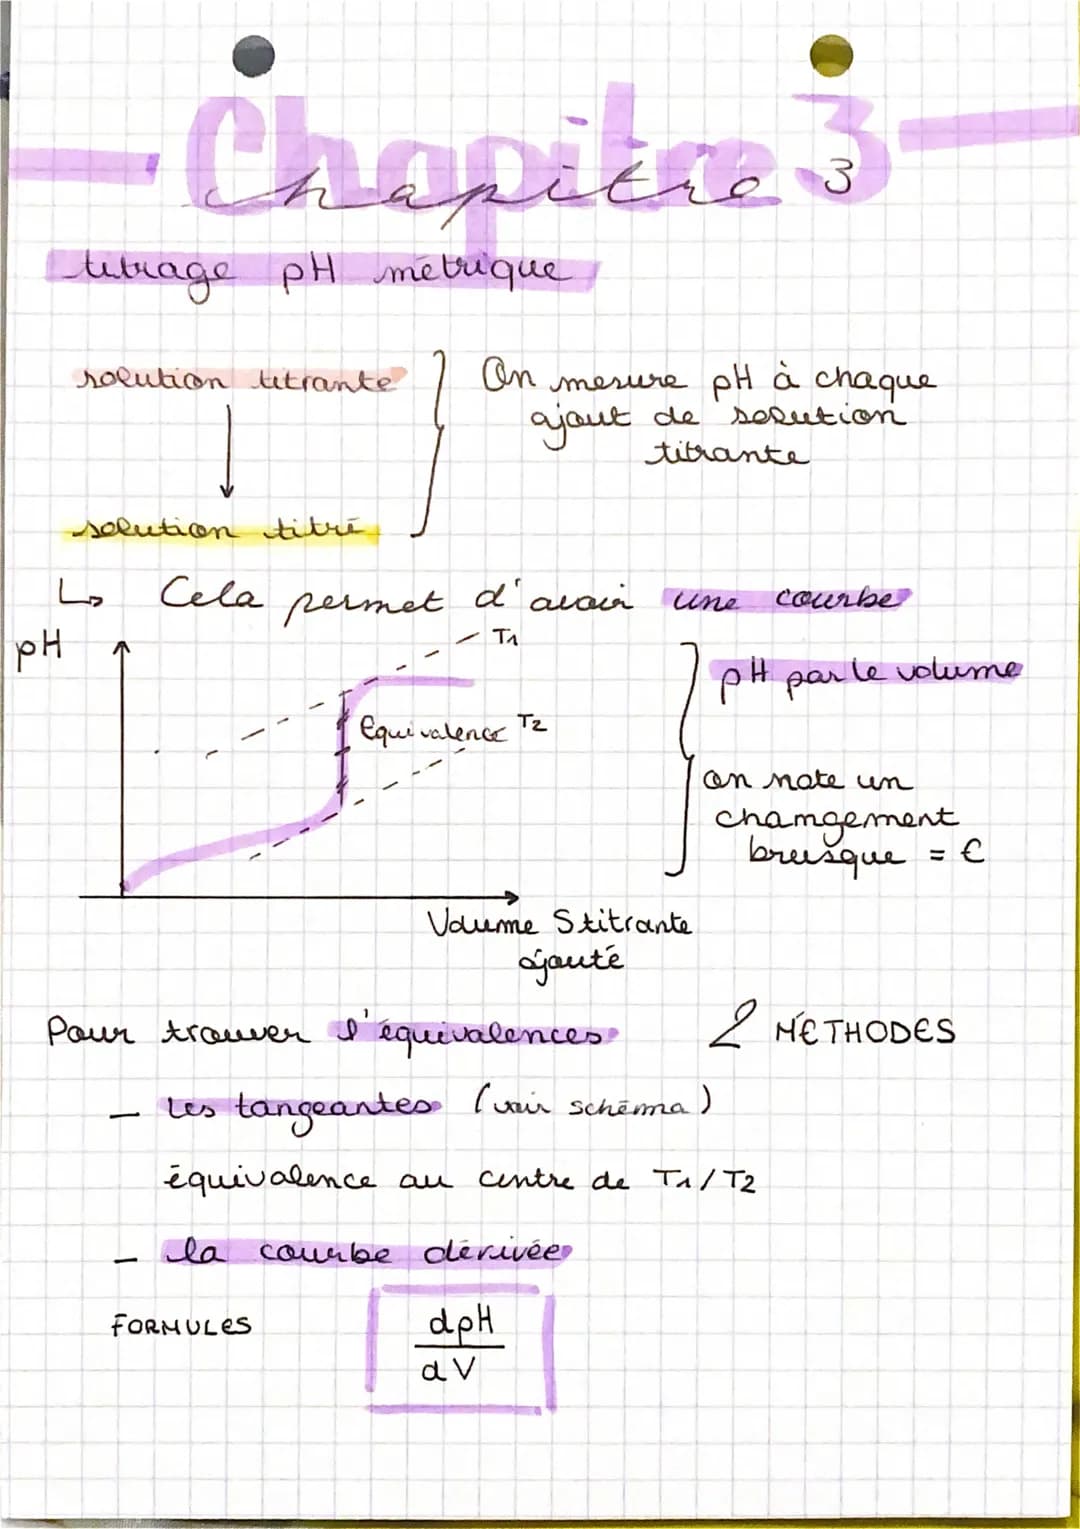 Chapitre 3
Chapitre 3
titrage pH métrique
solution titrante
On mesure pH à chaque
ajout de solution
titrante
solution titré
↳ Cela permet d'avoir une courbe
pH
T1
pH par le volume
Equivalence T2
on note un
changement
brusque = €
Volume S titrante
ajouté
Pour trouver l'équivalences 2 METHODES
- Les tangeantes (voir schéma)
équivalence au centre de T1/T2
- la courbe dérivée
FORMULES
dpH
dV